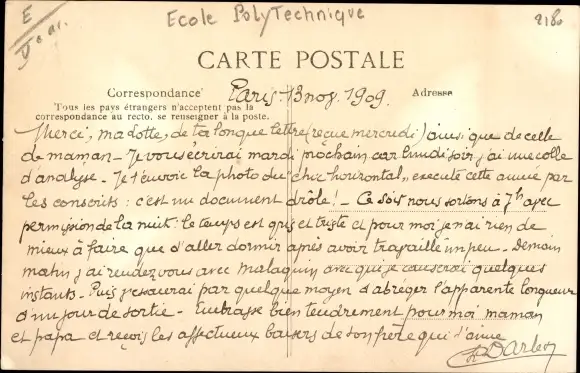 E
Ecole PolyTechnique
2180
CARTE POSTALE
Correspondance
Paris 13 nov. 1909.
Adresse
Tous les pays étrangers n'acceptent pas la
correspondance au recto, se renseigner à la poste.
Merci, ma dotte, de ta longue lettre (reçue mercredi) ainsi que de celle
de maman - Je vous écrirai mardi prochain car lundi soir j'ai une colle
d'analyse - Je t'envoie la photo du "chic horizontal", exécuté cette année par
les conscrits : c'est un document drôle ! - Ce soir nous sortons à 7h avec
permission de la nuit : le temps est gris et triste et pour moi je n'ai rien de
mieux à faire que d'aller dormir après avoir travaillé un peu - Demain
matin j'ai rendez vous avec Malaquin avec qui je causerai quelques
instants - Puis j'essaierai par quelque moyen d'abréger l'apparente longueur
d'un jour de sortie - Embrasse bien tendrement pour moi maman
et papa et reçois les affectueux baisers de ton frère qui t'aime
Darbon